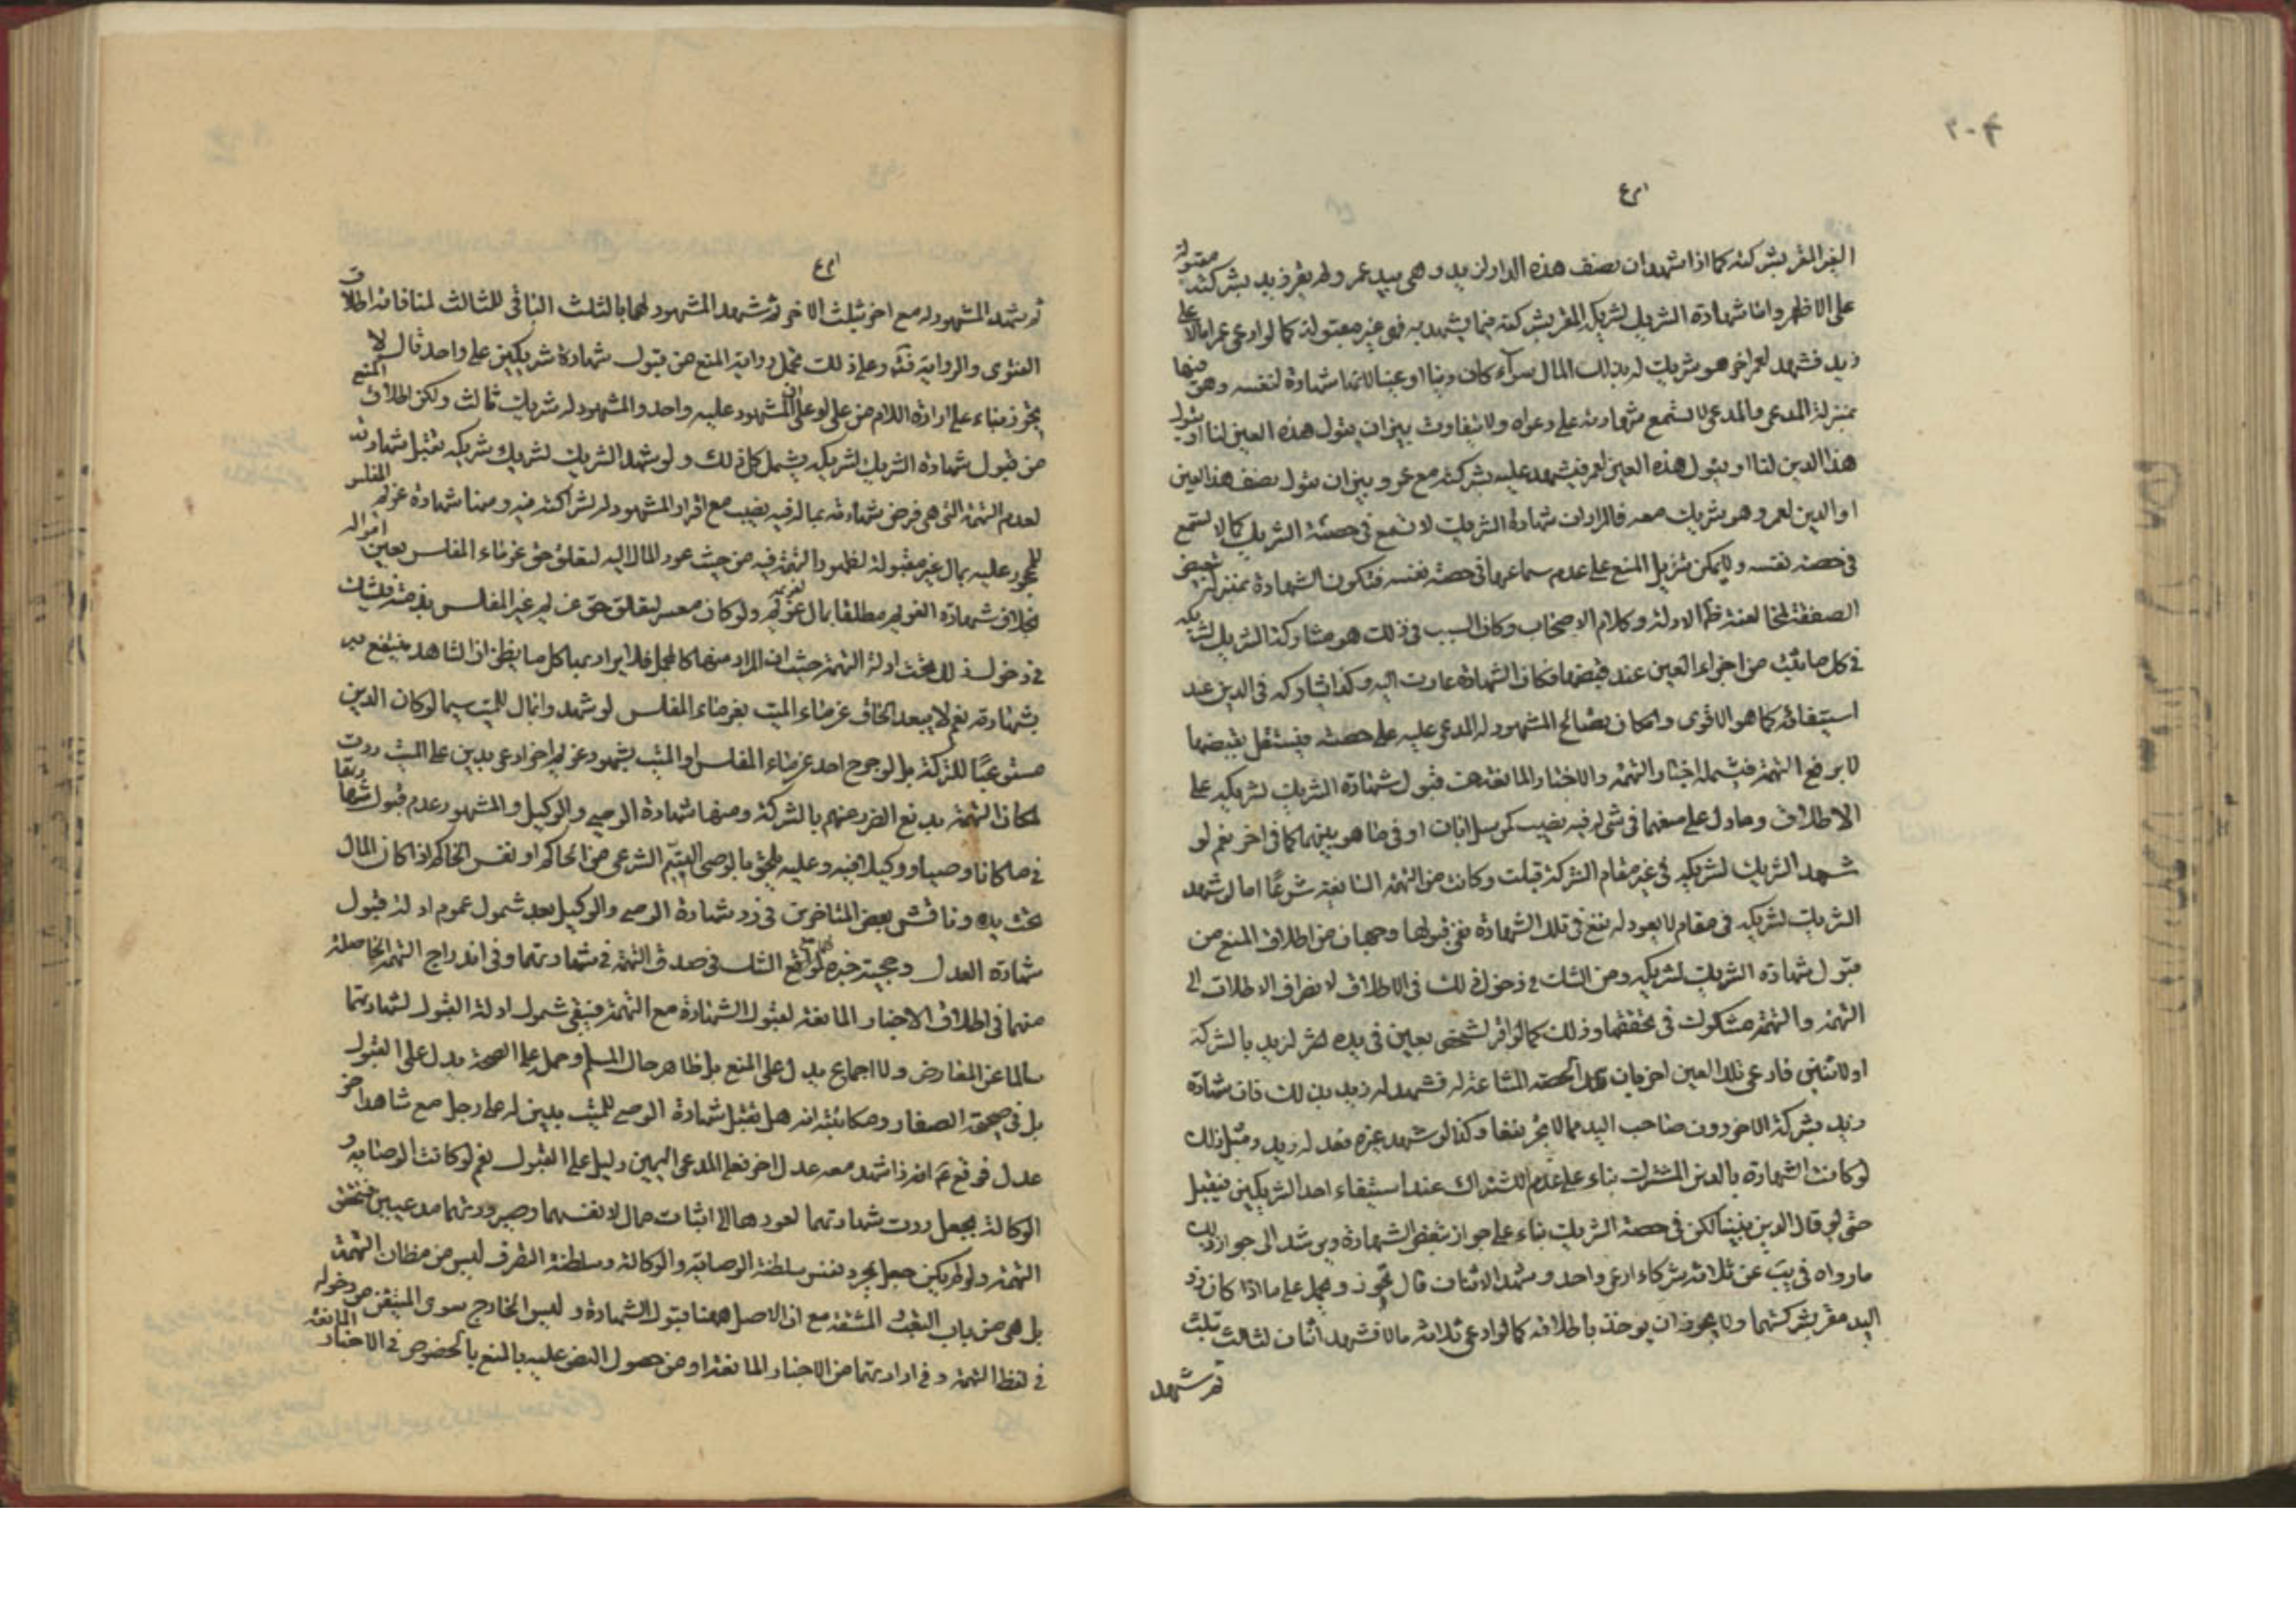 ٢٠٦
الغير المقر بشركته كما اذا شهد ان نصف هذه الدار لزيد وهى بيد عمر ولم يقر زيد بشركته مقبولة
على الاظهر واما شهادة الشريك لشريكه المقر بشركته فيما يشهد به فهى غير مقبولة كما لو ادعى عمرا مالا على
زيد فشهد لعمر اخر هو شريك له بذلك المال سواء كان دينا او عينا لانها شهادة لنفسه وهو فيها
بمنزلة المدعى والمدعى لا تسمع شهادته على دعواه ولا يتفاوت بين ان يقول هذه العين لنا او يقول
هذا الدين لنا او يقول هذه العين لعمر فيشهد عليه بشركته مع عمرو وبين ان يقول نصف هذا العين
او الدين لعمرو وهو شريك معه فالمراد ان شهادة الشريك لا تسمع فى حصة الشريك كما لا تسمع
فى حصة نفسه ولا يمكن تنزيل المنع على عدم سماعها فى حصة نفسه فتكون الشهادة بمنزلة تبعيض
الصفقة لمخالفته ظاهر الادلة وكلام الاصحاب وكان السبب فى ذلك هو مشاركة الشريك لشريكه
فى كل ما يثبت من اجزاء العين عند قبضها فكان الشهادة عادت اليه وكذا يشاركه فى الدين عند
استيفائه كما هو الاقوى وامكان يصالح المشهود له المدعى عليه على حصته فيستقل بقبضها
لا يرفع التهمة فيشمله اخبار التهمة والاخبار المانعة من قبول شهادة الشريك لشريكه على
الاطلاق وما دل على منعها فى شىء له فيه نصيب كمرسل ابان او فى ما هو بينهما كما فى اخر نعم لو
شهد الشريك لشريكه فى غير مقام الشركة قبلت وكانت من التهمة السائغة شرعًا اما لو شهد
الشريك لشريكه فى مقام لا يعود له نفع فى تلك الشهادة ففى قبولها وجهان من اطلاق المنع من
قبول شهادة الشريك لشريكه ومن الشك فى دخول ذلك فى الاطلاق لانصراف الاطلاق الى
التهمة والتهمة مشكوك فى تحققها وذلك كما لو اقر لشخص بعين فى يده اقر لزيد بالشركة
او لاثنين فادعى تلك العين اخر بان الحصة المشاعة له فشهد له زيد بذلك فان شهادة
زيد بشركة الاخر دون صاحب اليد مما لا يجر نفعا وكذا لو شهد غيره فعدله زيد ومثل ذلك
لو كانت الشهادة بالدين المشترك بناء على عدم الاشتراك عند استيفاء احد الشريكين فيقبل
حتى لو قال الدين بيننا لكن فى حصة الشريك بناء على جواز تبعض الشهادة ويرشد الى جواز ذلك
ما رواه فى يب عن ثلاثة شركاء ادعى واحد وشهد الاثنان قال تجوز ويحمل على ما اذا كان ذو
اليد مقر بشركتهما ولا يجوز ان يوخذ باطلاقه كما لو ادعى ثلاثة مالا فشهد اثنان لثالث بثلث
ثم شهد
ثم شهد المشهود له مع اخر بثلث الاخر ثم شهد المشهود لهما بالثلث الباقى للثالث لمنافاته اطلاق
الفتوى والرواية فتد وعلى ذلك تحمل رواية المنع من قبول شهادة شريكين على واحد قال لا
يجوز بناء على ارادة اللام من على او على ان المشهود عليه واحد والمشهود له شريك ثالث ولكن اطلاق المنع
من قبول شهادة الشريك لشريكه يشمل كل ذلك ولو شهد الشريك لشريك شريكه تقبل شهادته
لعدم التهمة التى هى فرض شهادته بما له فيه نصيب مع اقرار المشهود له بشراكته فيه ومنها شهادة غريم المفلس
المحجور عليه بمال غير مقبولة لظهور التهمة فيه من حيث عود المال اليه لتعلق حق غرماء المفلس بعين امواله
بخلاف شهادة الغريم مطلقا بمال غريمه لغريمه ولو كان معسر لتعلق حق غريم غير المفلس بذمته فيشك
فى دخول ذلك تحت ادلة التهمة حيث ان المراد منها كالمجمل فلا يراد بها كل ما يظن ان الشاهد ينتفع به
بشهادته نعم لا يبعد الحاق غرماء الميت بغرماء المفلس لو شهدوا بمال للميت سيما لو كان الدين
مستوعبًا للتركة بل لو جرح احد غرماء المفلس او الميت بشهود غريم اخر ادعى بدين على الميت ردت
لمكان التهمة بدفع الضرر عنهم بالشركة ومنها شهادة الوصى والوكيل والمشهور عدم قبول شهادتهما
فى ما كانا وصيا ووكيلا فيه وعليه يلحق بالوصى القيم الشرعى من الحاكم او نفس الحاكم اذا كان المال
تحت يده وناقش بعض المتاخرين فى رد شهادة الوصى والوكيل بعد شمول عموم ادلة قبول
شهادة العدل وحجية خبره لهما لوقوع الشك فى صدق التهمة فى شهادتهما وفى اندراج التهمة الحاصلة
منهما فى اطلاق الاخبار المانعة لقبول الشهادة مع التهمة فيبقى شمول ادلة القبول لشهادتهما
سالما عن المعارض ولا اجماع يدل على المنع بل ظاهر حال المسلم وحمله على الصحة يدل على القبول
بل فى صحيحة الصفار ومكاتبته انه هل تقبل شهادة الوصى للميت بدين له على رجل مع شاهد اخر
عدل فوقع ع اذا شهد معه عدل اخر فعلى المدعى اليمين دليل على القبول نعم لو كانت الوصاية و
الوكالة بجعل ردت شهادتهما لعودها الى اثبات مال لانفسهما وصيرورتهما مدعيين فتتحقق
التهمة ولو لم يكن جعل مجرد نفس سلطنة الوصاية والوكالة وسلطنة التصرف ليس من مظان التهمة
بل هى من باب التعب والمشقة مع ان الاصل ههنا قبول الشهادة وليس الخارج سوى المتيقن من دخوله
فى لفظ التهمة وفى ارادتهما من الاخبار المانعة او من حصول النص عليه بالمنع بالخصوص فى الاخبار المانعة